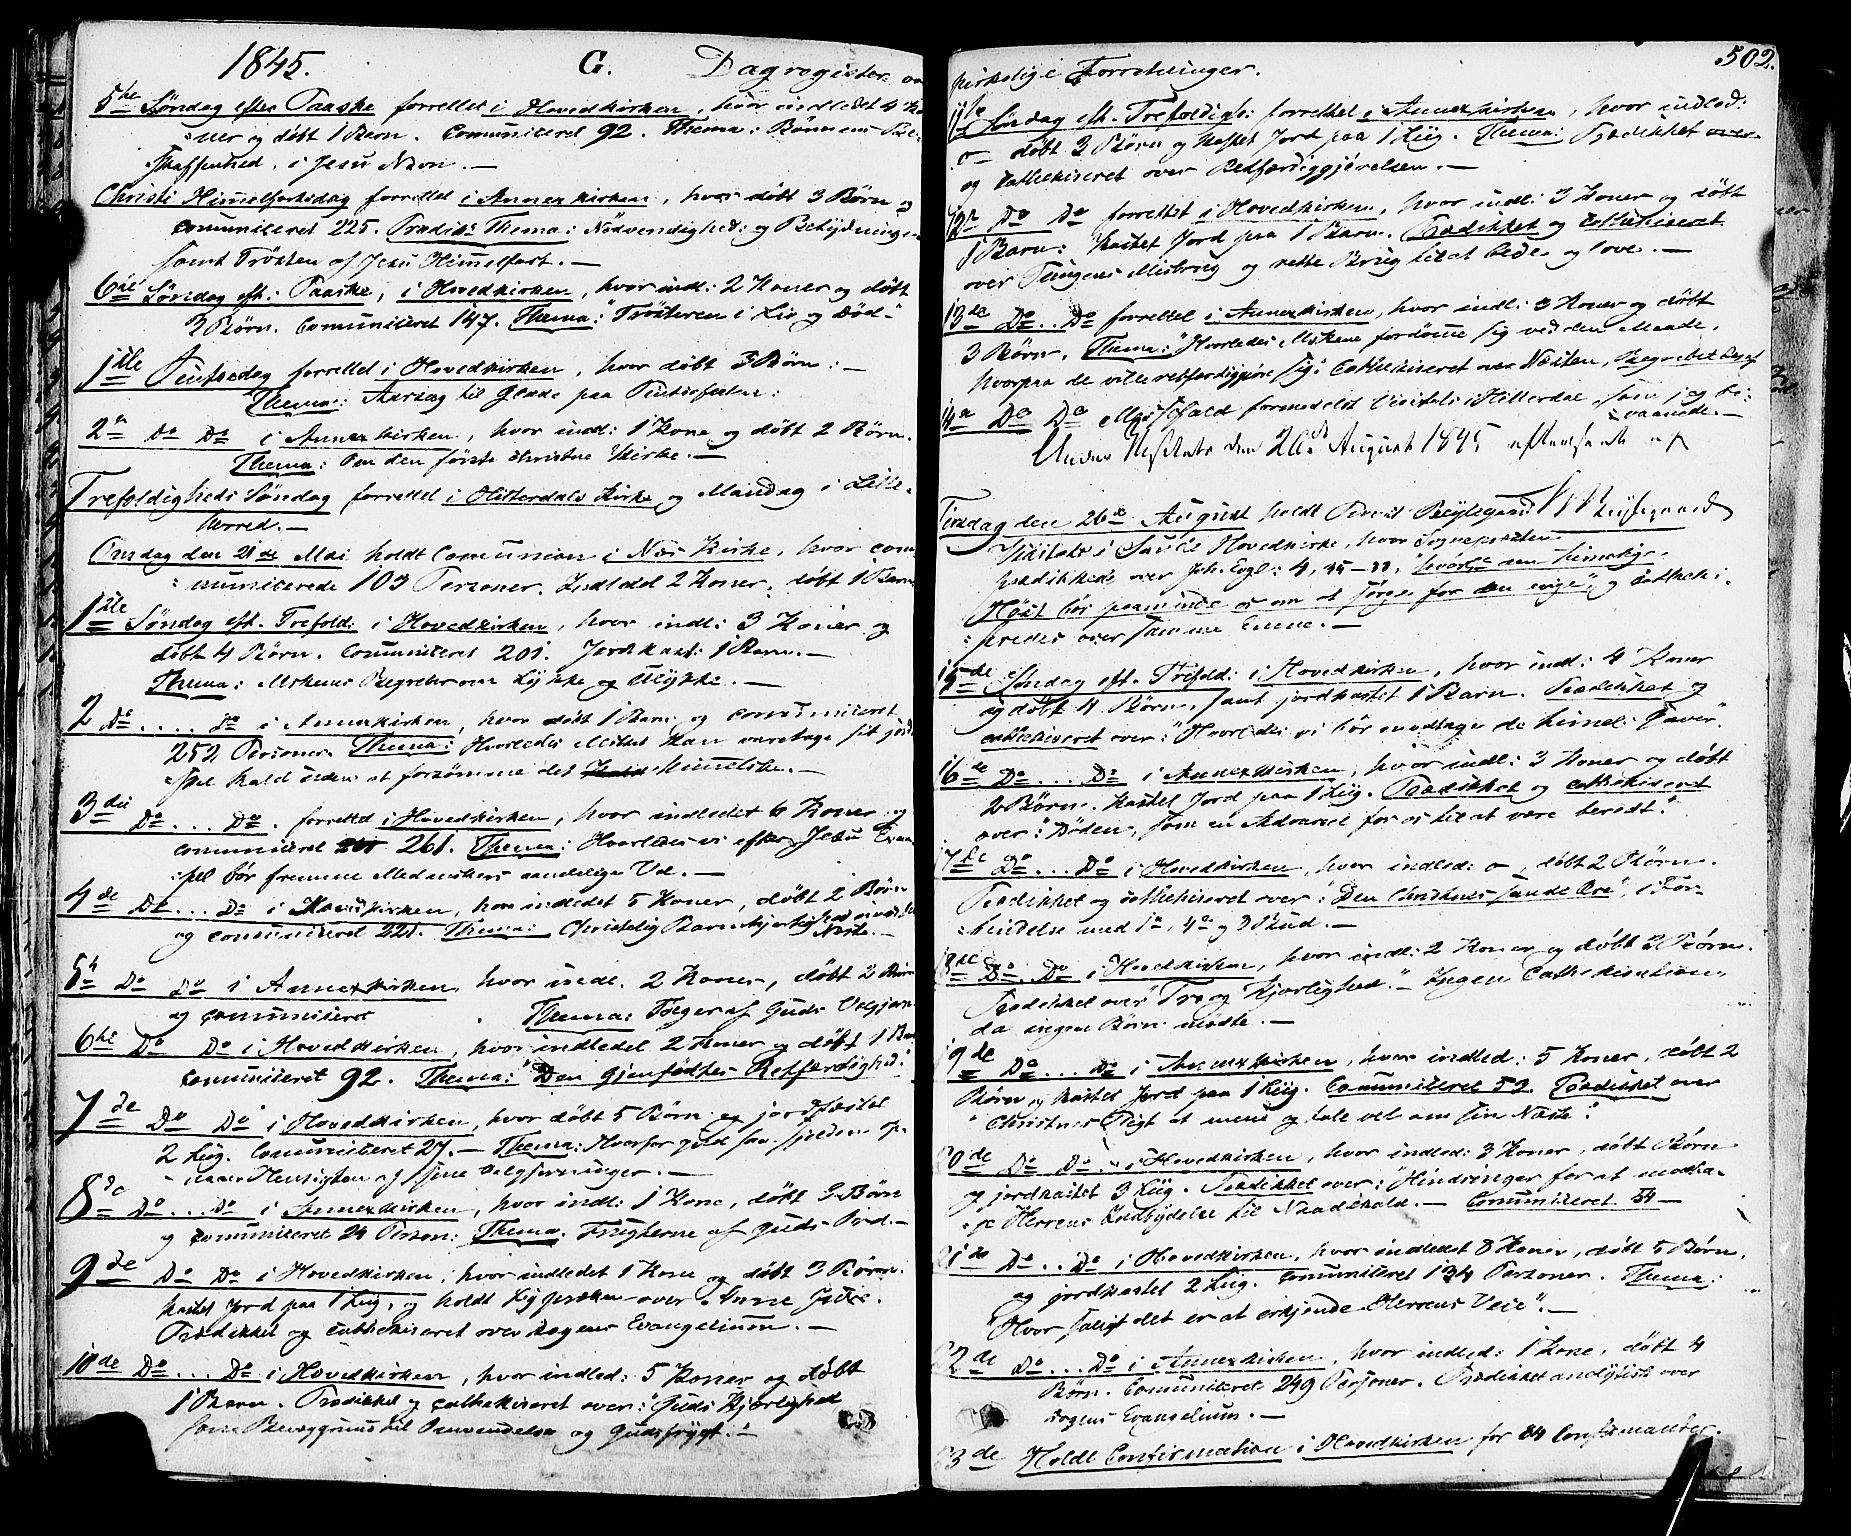 1845. G. Dagregister ov
5te Søndag efter Paaske forrettet i Hovedkirken, hvor indledt 4 Ko
ner og døbt 1 Barn. Communiceret 92. Thema: Bønnens
skaffenhed, i Jesu Navn. —
Christi Himmelfartsdag forrettet i Annexkirken, hvor døbt 3 Børn og
communiceret 225. Prædik: Thema: Nödvendighed: og Betydningen
samt Trösten af Jesu Himmelfart. —
6te Søndag eft: Paaske, i Hovedkirken, hvor indl: 2 Koner og døbt
2 Børn. Communiceret 147. Thema: "Trösteren i Liv og Død."
1ste Pintsedag forrettet i Hovedkirken, hvor døbt 3 Børn: —
Thema: Aarsag til Glæde paa Pintsefesten:
2n Do Do i Annexkirken, hvor indl: 1 Kone og døbt 2 Børn.
Thema: Om den første christne Kirke. —
Trefoldigheds Søndag forrettet i Hitterdals Kirke og Mandag i Lille-
herred. —
Onsdag den 21de Mai holdt Communion i Næs Kirke, hvor com
municerede 103 Personer. Indledet 2 Koner, døbt 1 Barn
1ste Søndag eft. Trefold: i Hovedkirken, hvor indl: 3 Koner og
døbt 4 Børn. Communiceret 201. Jordkast: 1 Barn. —
Thema: Mskenes Begreber om Lykke og Ulykke. —
2 Do .... Do i Annexkirken, hvor døbt 1 Barn og communiceret
252 Personer. Thema: Hvorledes Msket kan varetage sit jord
ske Kald uden at forsømme det himmelske. —
3die Do ... Do. forrettet i Hovedkirken, hvor indledet 6 Koner og
communiceret 261. Thema: Hvorledes vi efter Jesu Exem
pel bør fremme Medmskers aandelige Vel. —
4de Do ... Do i Hovedkirken, hvor indledet 5 Koner, døbt 2 Børn
og communiceret 221. Thema: Christelig Barmhjertighed imod
Næste. —
5te Do Do i Annexkirken, hvor indl. 2 Koner, døbt 2 Børn
og communiceret . Thema: Følger af Guds Velgjern
6te Do Do i Hovedkirken, hvor indledet 2 Koner og døbt 1 Barn
communiceret 92. Thema: "Den gjenfødtes Retfærdighed."
7de Do Do i Hovedkirken, hvor døbt 5 Børn og jordfæstet
2 Liig. Communiceret 27. — Thema: Hvorfor Gud saa sjelden op-
naaer Hensigten af sine Velgjerninger. —
8de Do ... Do i Annexkirken, hvor indl: 1 Kone, døbt 3 Børn
og communiceret 24 Person: Thema: Frugterne af Guds Ord. —
9de Do Do i Hovedkirken, hvor indledet 1 Kone og døbt 3 Børn.
kastet Jord paa 1 Liig, og holdt Ligpræken over Anne
Prædikket og catthekiseret over Dagens Evangelium. —
10de Do ... Do i Hovedkirken, hvor indled: 5 Koner og døbt
1 Barn. Prædikket og catthekiseret over: "Guds Kjærlighed
som Bevæggrund til Omvendelse og Gudsfrygt." —
kirkelige Forretninger. 502.
11te Søndag eft. Trefoldigh: forrettet i Annexkirken, hvor indled:
o — døbt 3 Børn og kastet Jord paa 1 Liig. Thema: Prædikket
og catthekiseret over Retfærdiggjörelsen. —
12te Do Do forrettet i Hovedkirken, hvor indl: 3 Koner og døbt
1 Barn: kastet Jord paa 1 Barn. Prædikket og catthekiseret
over Tungens Misbrug og rette Brug til at bede og love. —
13de Do .. Do forrettet i Annexkirken, hvor indl: 3 Koner og døbt
3 Børn. Thema: "Hvorledes Mskene fordømme sig ved den Maade,
hvorpaa de ville retfærdiggjøre sig: Catthekiseret over Næsten.
14de Do Do Messefald formedelst Visitats i Hitterdal, som jeg bi-
vaanede. —
Under Visitats den 26de August 1845 eftersseet af
Tirsdag den 26de August holdt Provst Bøylegaard
Visitats i Hovedkirke, hvor Sognepræsten
prædikkede over Joh. Evgl: 4, 35—
Høst bør paaminde os om at sørge for den evige", og catheki-
seredes over samme Emne. —
15de Søndag eft. Trefold: i Hovedkirken, hvor indl: 4 Koner
og døbt 4 Børn, samt jordkastet 1 Barn. Prædikket og
catthekiseret over: "Hvorledes vi bør modtage de himmel: Gaver".
16de Do ... Do i Annexkirken, hvor indl: 3 Koner og døbt
2 Børn. kastet Jord paa 1 Liig. Prædikket og catthekiseret
over: "Døden, som en Advarsel for os til at være beredt."
17de Do ... Do i Hovedkirken, hvor indled: o —, døbt 2 Børn.
Prædikket og catthekiseret over: "Den Christnes sande Ære", i For-
bindelse med 1te, 4de og 3 Bud. —
18de Do. Do i Hovedkirken, hvor indl: 2 Koner og døbt 2 Børn.
Prædikket over "Tro og Kjærlighed". — Ingen Catthekisation,
da ingen Børn mødte. —
19de Do ... Do i Annexkirken, hvor indled: 5 Koner, døbt 2
Børn, og kastet Jord paa 1 Liig. Communiceret 52. Prædikket over
"Christnes Pligt at mene og tale vel om sin Næste."
20de Do Do .. i Hovedkirken, hvor indled: 3 Koner, døbt Børn
og jordkastet 3 Liig. Prædikket over: "Hindringer for at modta-
ge Herrens Indbydelse til Naadekald. — Communiceret 54 —
21de Do .. Do i Hovedkirken, hvor indledet 8 Koner, døbt 5 Børn,
og jordkastet 2 Liig. Communiceret 134 Personer. Thema:
"Hvor saligt det er at erkjende Herrens Veie". —
22de Do ... Do i Annexkirken, hvor indled: 1 Kone, døbt 4
Børn. Communiceret 249 Personer. Prædikket analytisk over
Dagens Evangelium. —
23de Holdt Confirmation i Hovedkirken for 24 Confirmander.